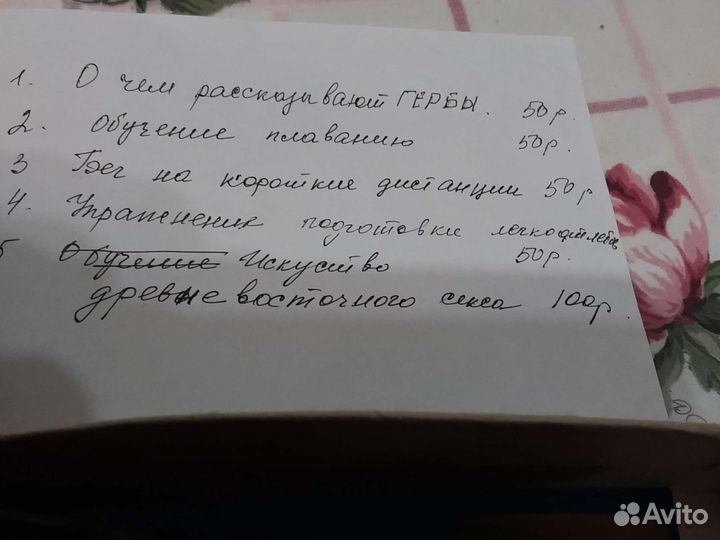 1. О чем рассказывают ГЕРБЫ. 50р.
2. Обучение плаванию 50р.
3 Бег на короткие дистанции 50р
4. Упражнения подготовки легкоатлетов
50р.
5 Обучение Искуство
древневосточного секса 100р.
Avito